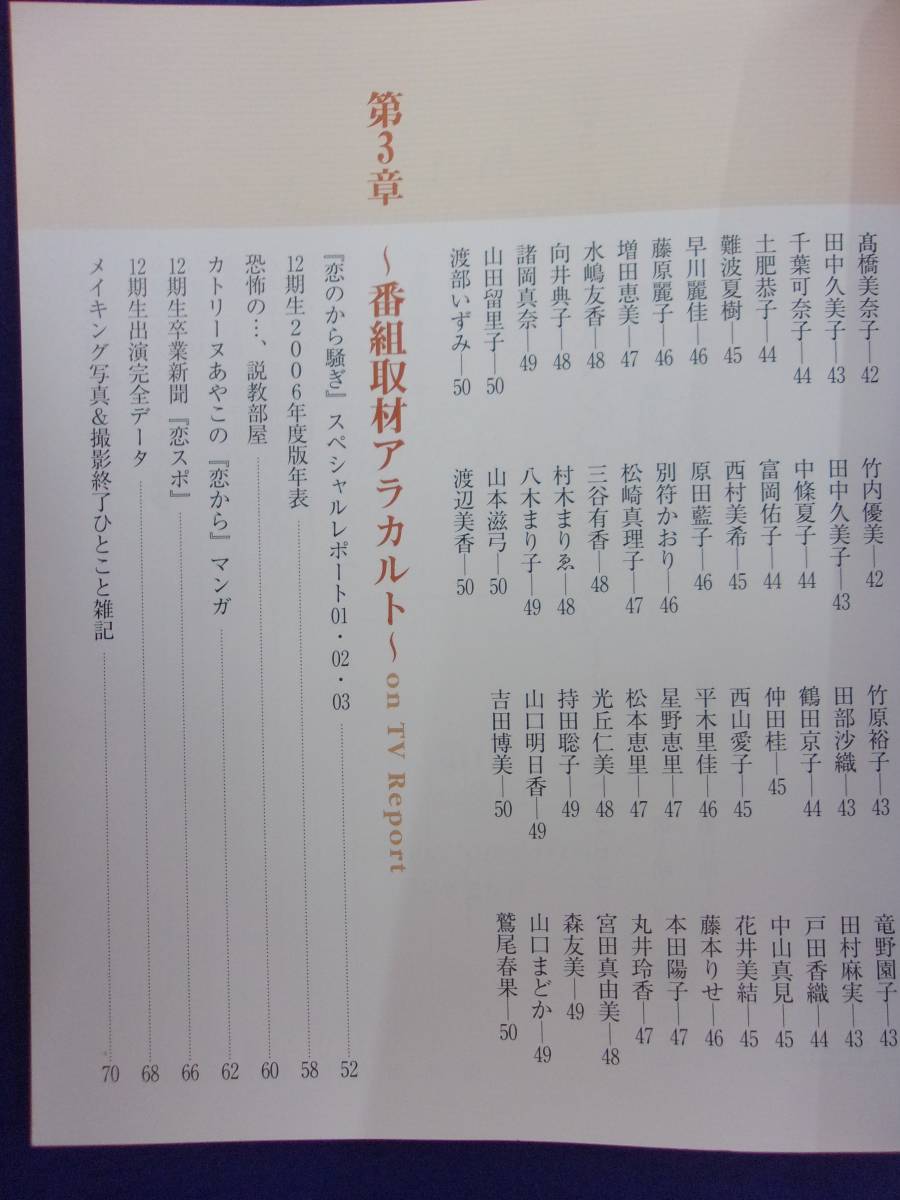 髙橋美奈子―42
竹内優美―42
竹原裕子―43
竜野園子―43
田中久美子―43
田中久美子―43
田部沙織―43
田村麻実―43
千葉可奈子―44
中條夏子―44
鶴田京子―44
戸田香織―44
土肥恭子―44
富岡佑子―44
仲田桂―45
中山真見―45
難波夏樹―45
西村美希―45
西山愛子―45
花井美結―45
早川麗佳―46
原田藍子―46
平木里佳―46
藤本りせ―46
藤原麗子―46
別符かおり―46
星野恵里―47
本田陽子―47
増田恵美―47
松崎真理子―47
松本恵里―47
丸井玲香―47
水嶋友香―48
三谷有香―48
光丘仁美―48
宮田真由美―48
向井典子―48
村木まりゑ―48
持田聡子―49
森友美―49
諸岡真奈―49
八木まり子―49
山口明日香―49
山口まどか―49
山田留里子―50
山本滋弓―50
吉田博美―50
鷲尾春果―50
渡部いずみ―50
渡辺美香―50
第3章 ～番組取材アラカルト～on TV Report
『恋のから騒ぎ』スペシャルレポート01・02・03 52
12期生2006年度版年表 58
恐怖の…、説教部屋 60
カトリーヌあやこの『恋から』マンガ 62
12期生卒業新聞『恋スポ』 66
12期生出演完全データ 68
メイキング写真&撮影終了ひとこと雑記 70